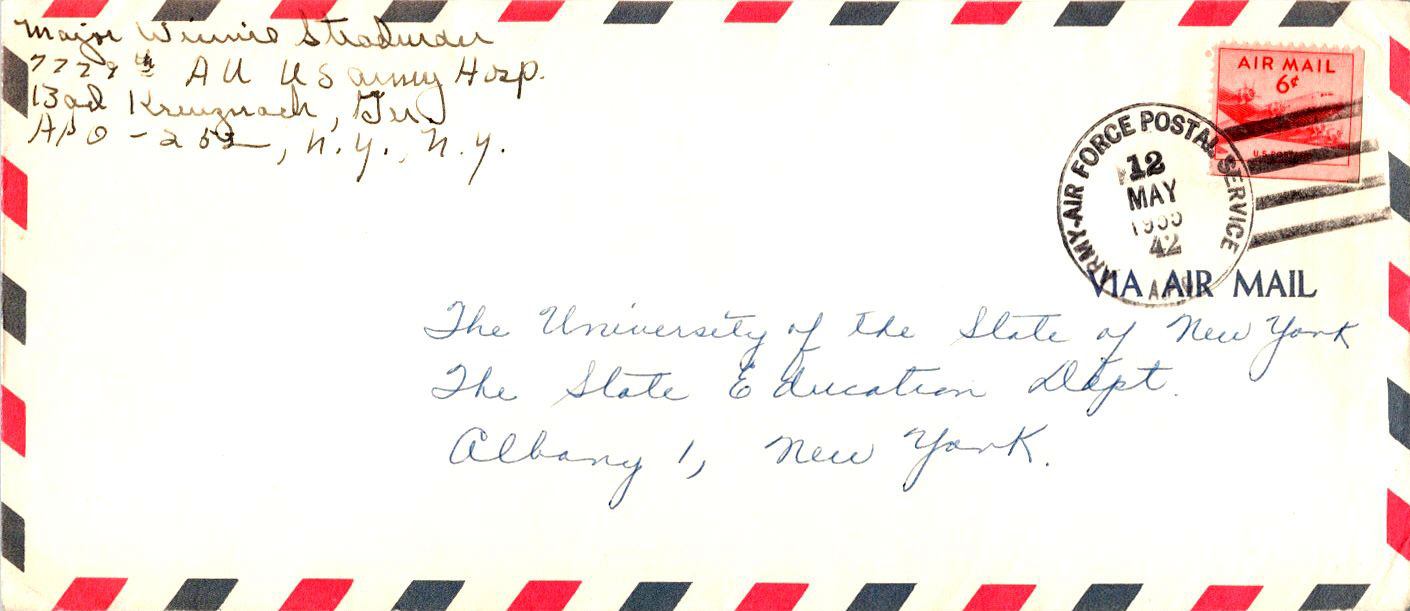 Major Winnie
7729th AU US Army Hosp.
Bad Kreuznach, Ger.
APO - 252, N.Y., N.Y.
AIR MAIL
6¢
U.S. POSTAGE
ARMY-AIR FORCE POSTAL SERVICE
12
MAY
42
VIA AIR MAIL
The University of the State of New York
The State Education Dept.
Albany 1, New York.